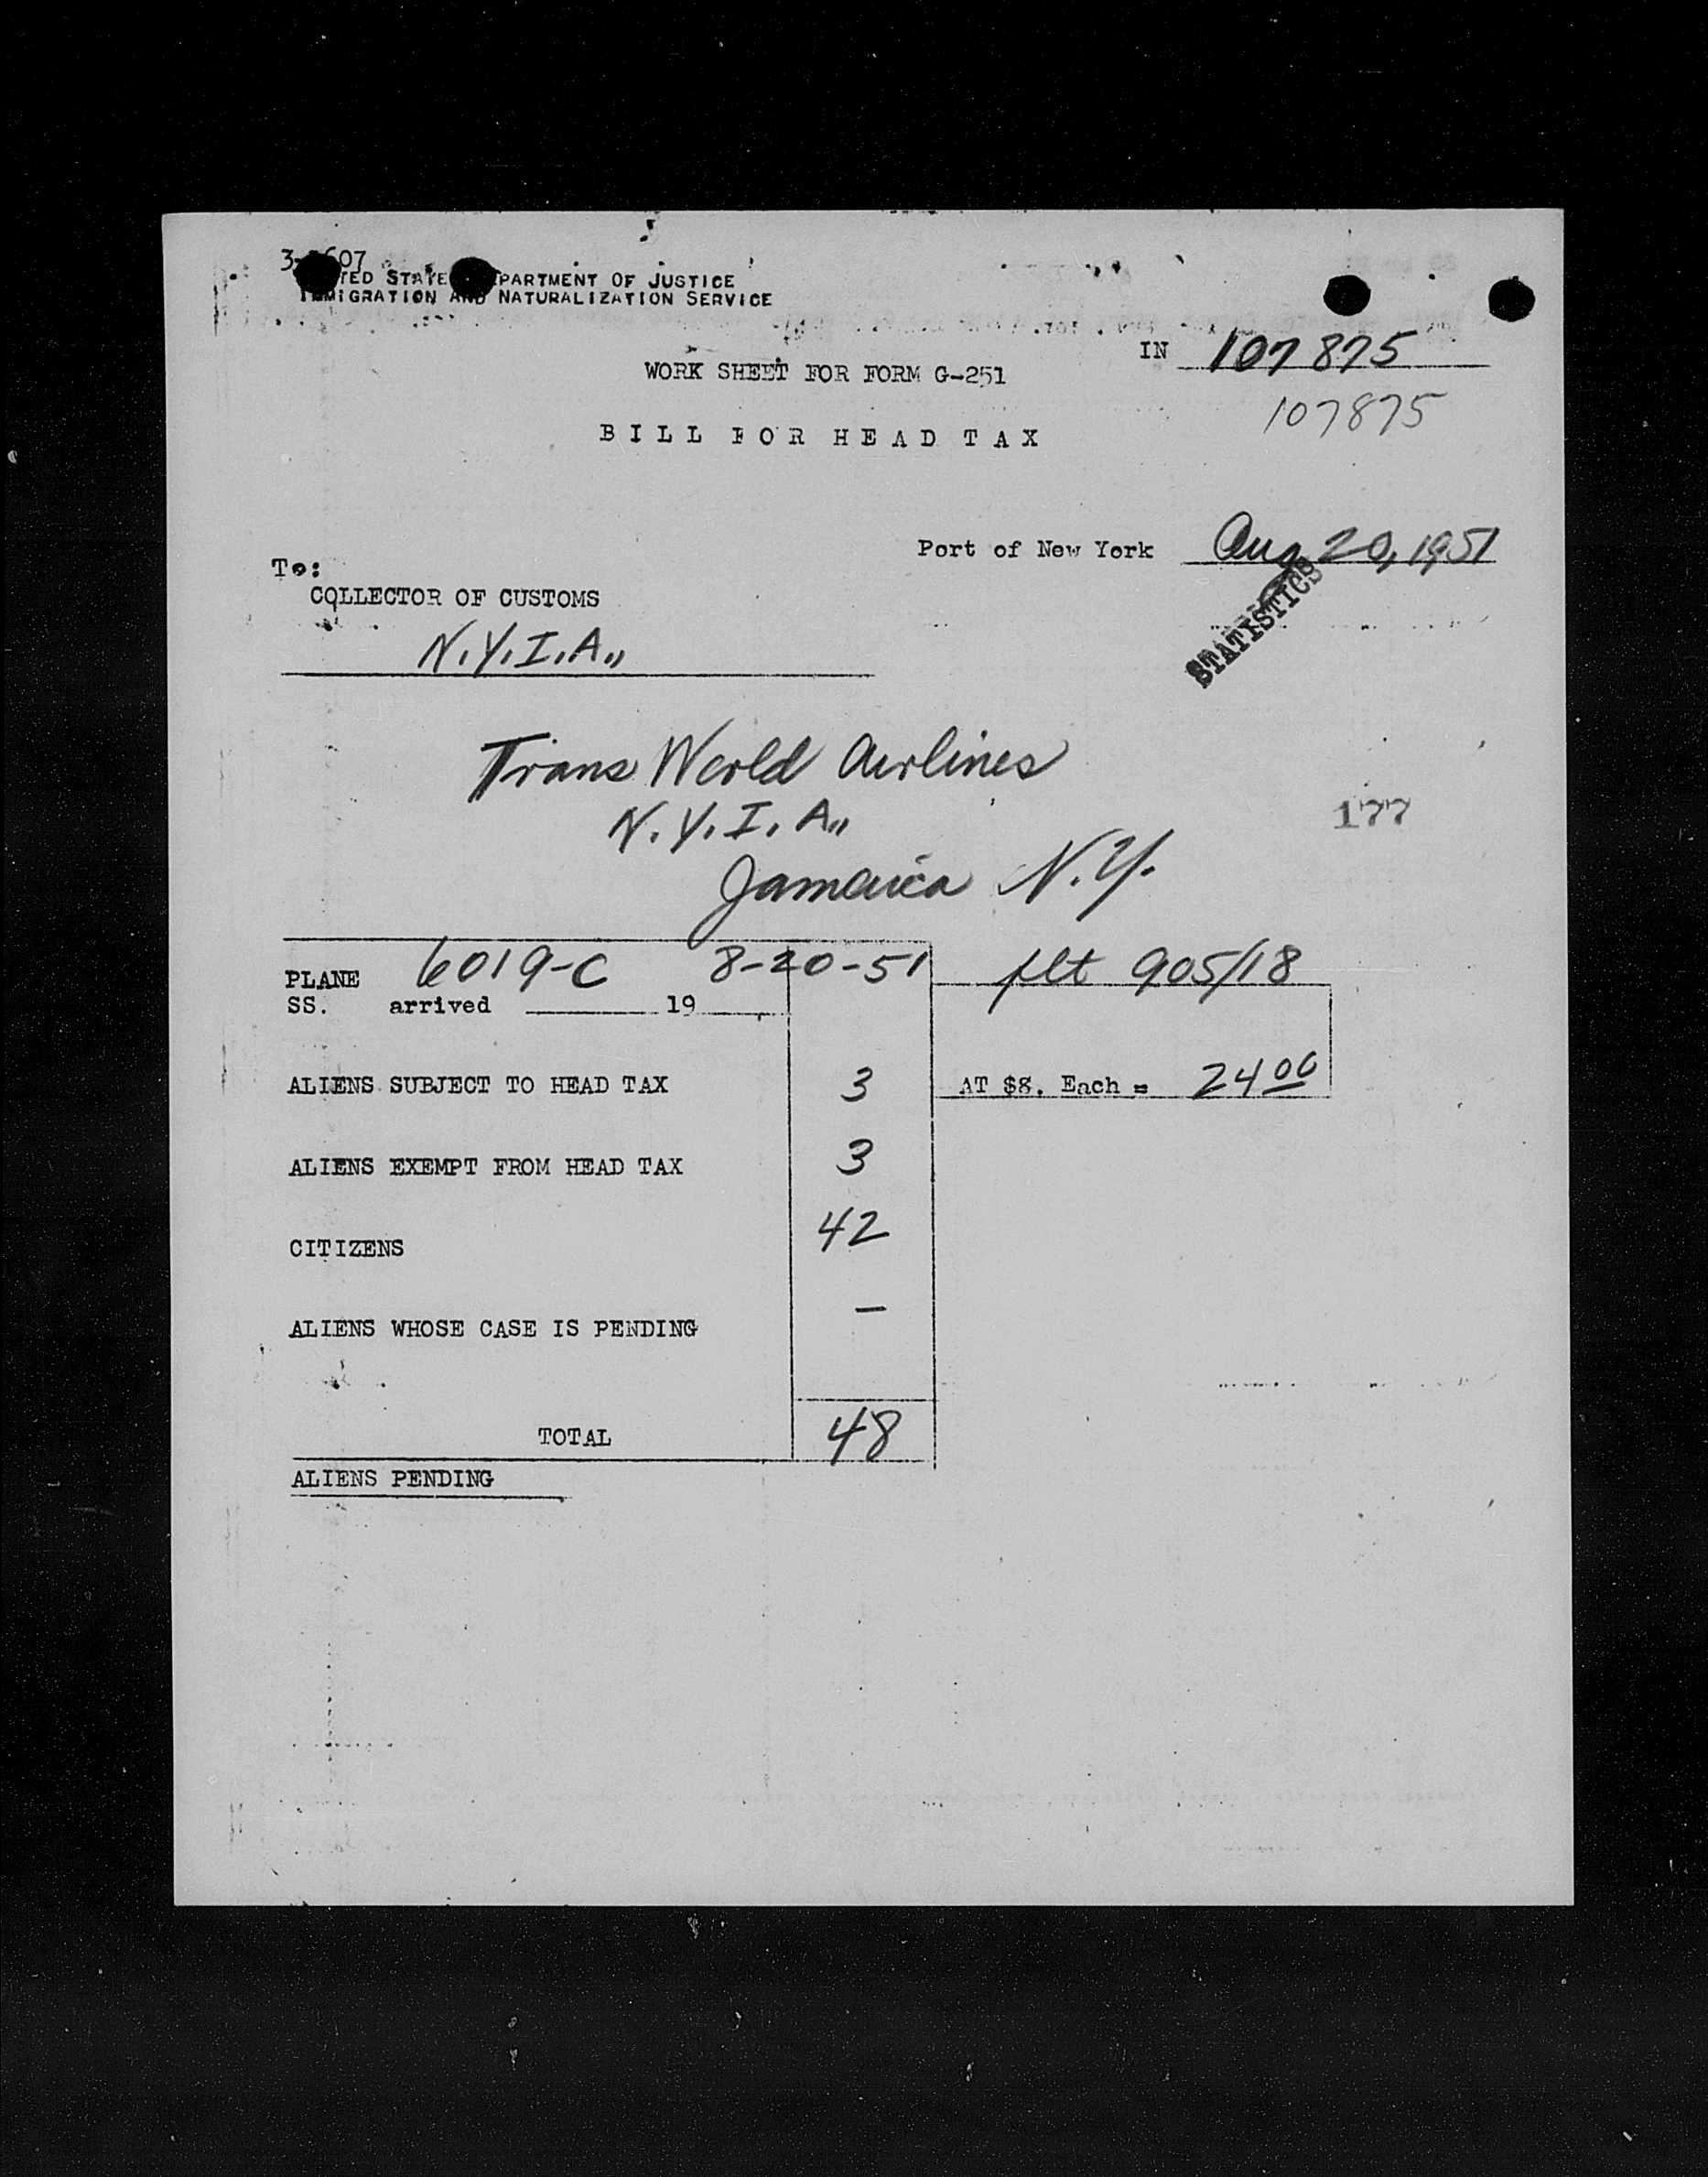 UNITED STATES DEPARTMENT OF JUSTICE
IMMIGRATION AND NATURALIZATION SERVICE
IN 107875
WORK SHEET FOR FORM G-251
107875
BILL FOR HEAD TAX
Port of New York Aug 20, 1951
To:
COLLECTOR OF CUSTOMS
STATISTICS
N.Y.I.A.,
Trans World Airlines
N.Y.I.A.,
177
Jamaica N.Y.
PLANE 6019-C 8-20-51 flt 905/18
SS. arrived 19
ALIENS SUBJECT TO HEAD TAX 3 AT $8. Each = 24 00
ALIENS EXEMPT FROM HEAD TAX 3
CITIZENS 42
ALIENS WHOSE CASE IS PENDING —
TOTAL 48
ALIENS PENDING